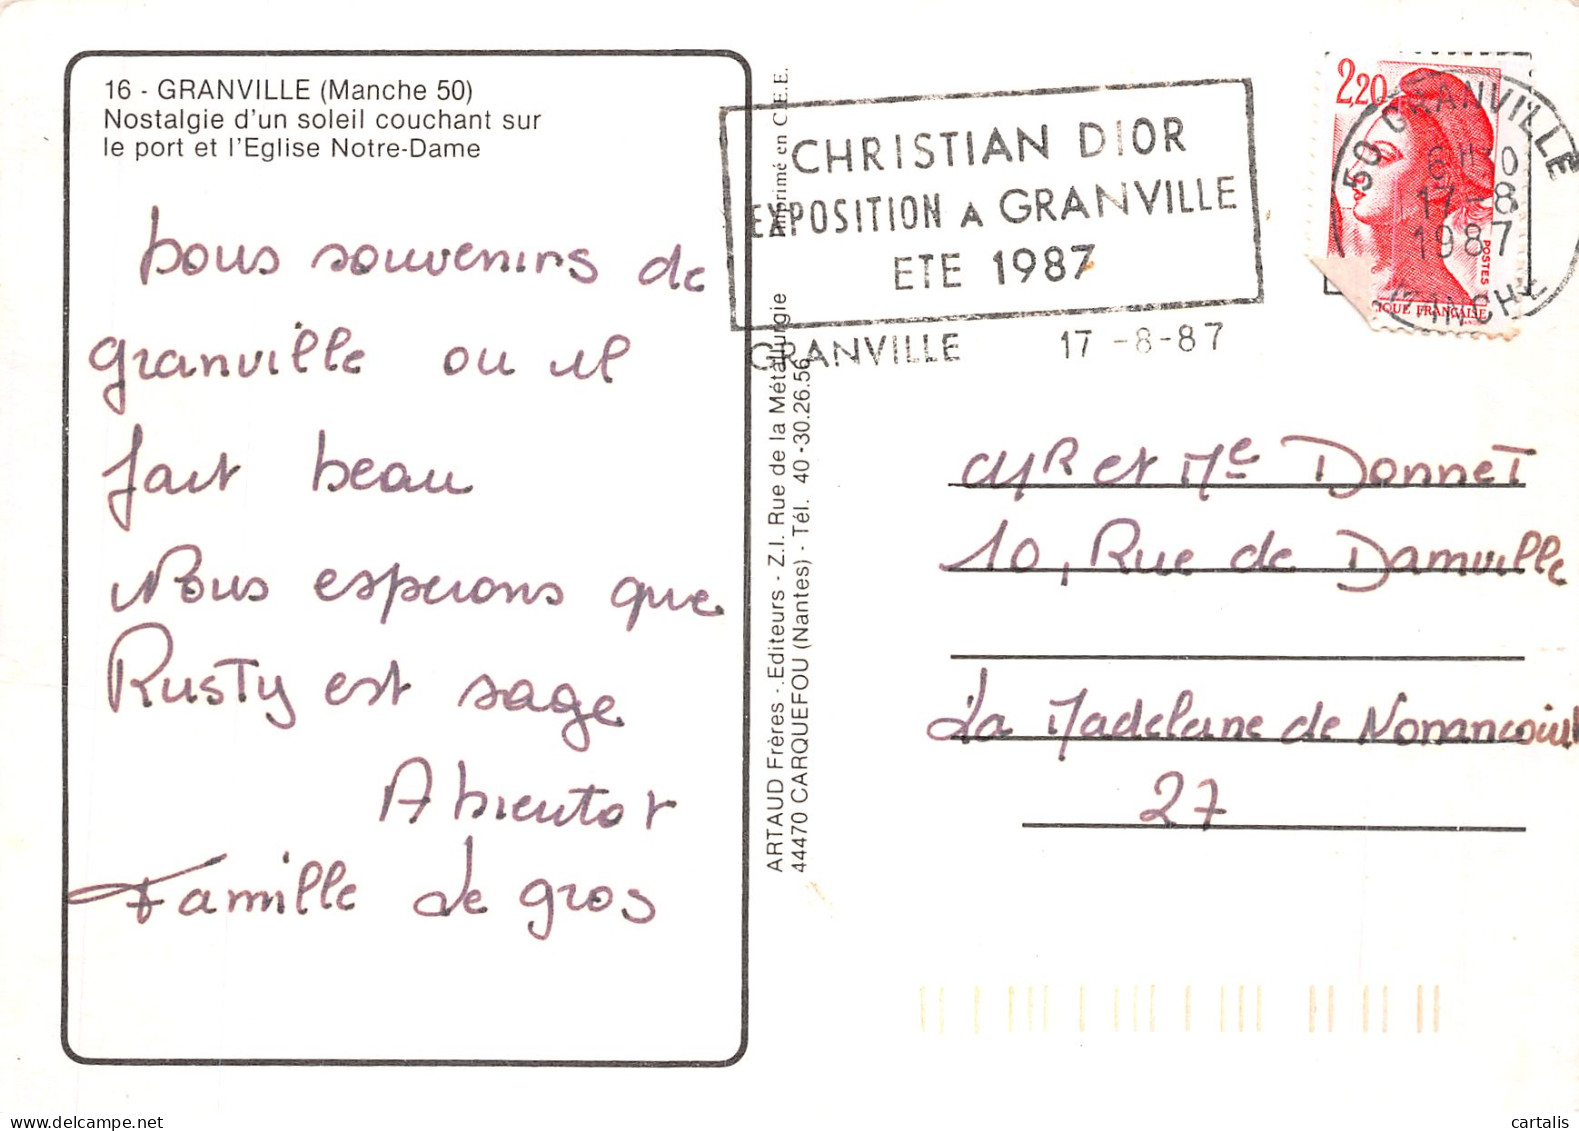 16 - GRANVILLE (Manche 50)
Nostalgie d'un soleil couchant sur
le port et l'Eglise Notre-Dame
bons souvenirs de
granville ou il
fait beau
Nous esperons que
Rusty est sage
A bientot
Famille Le gros
Imprimé en C.E.E.
ARTAUD Frères - Editeurs - Z.I. Rue de la Métallurgie
44470 CARQUEFOU (Nantes) - Tél. 40-30.26.56
CHRISTIAN DIOR
EXPOSITION A GRANVILLE
ETE 1987
GRANVILLE 17 -8-87
2,20
POSTES
IQUE FRANÇAISE
50 GRANVILLE
6H30
17-8
1987
MANCHE
MR et Me Donnet
10, Rue de Damville
La Madelaine de Nonancourt
27
www.cartalis.delcampe.net
cartalis